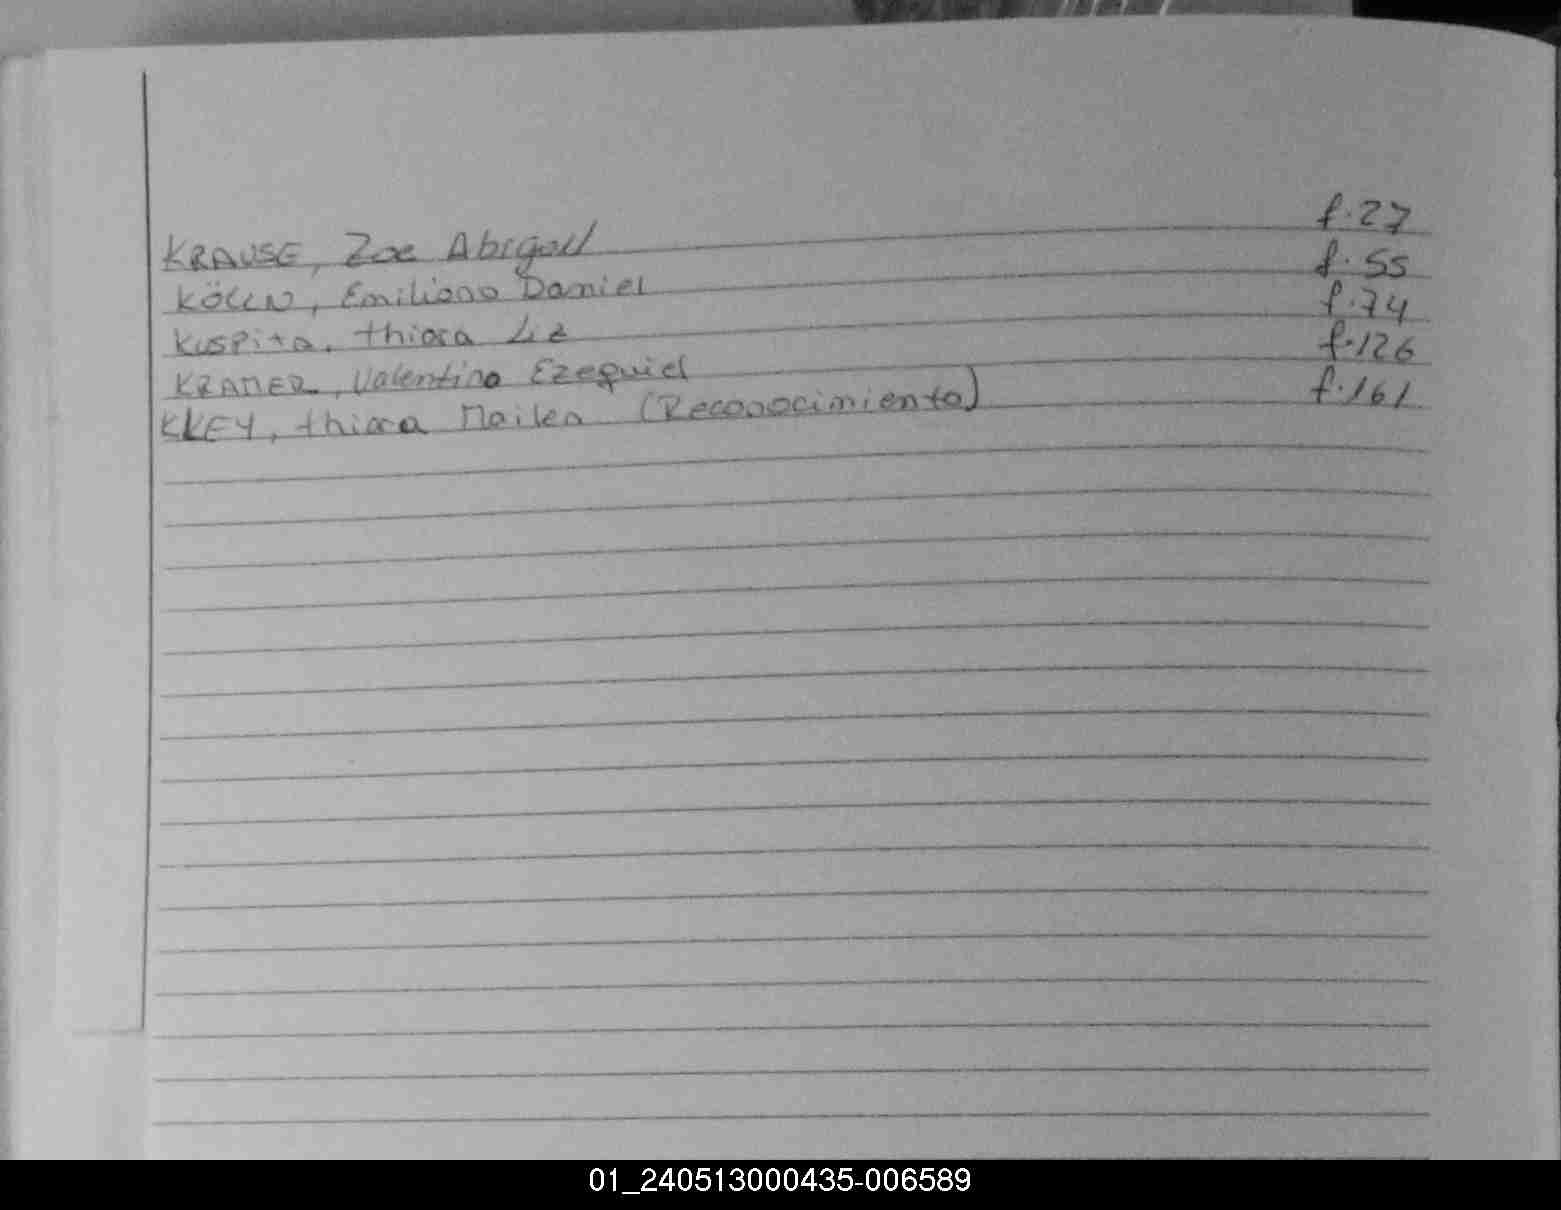 KRAUSE, Zoe Abigail f.27
KÖLLN, Emiliano Daniel f.55
KUSPITA, thiara Liz f.74
KRAMER, Valentino Ezequiel f.126
KLEY, thiara Mailen (Reconocimiento) f.161
01_240513000435-006589